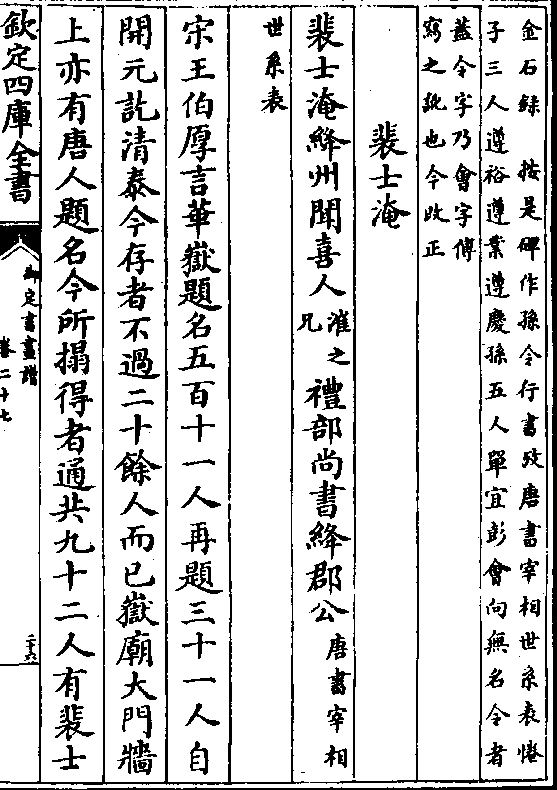 金石録 按是碑作孫令行書攷唐書宰相世系表惓
子三人遵裕遵業遵慶孫五人單宜彭會向無名令者
蓋令字乃會字傳
寫之訛也今改正
裴士淹
裴士淹絳州聞喜人漼之兄禮部尚書絳郡公唐書宰相
世系表
宋王伯厚言華嶽題名五百十一人再題三十一人自
開元訖清泰今存者不過二十餘人而已嶽廟大門牆
上亦有唐人題名今所搨得者通共九十二人有裴士
欽定四庫全書
御定書畫譜
卷二十七
二十六